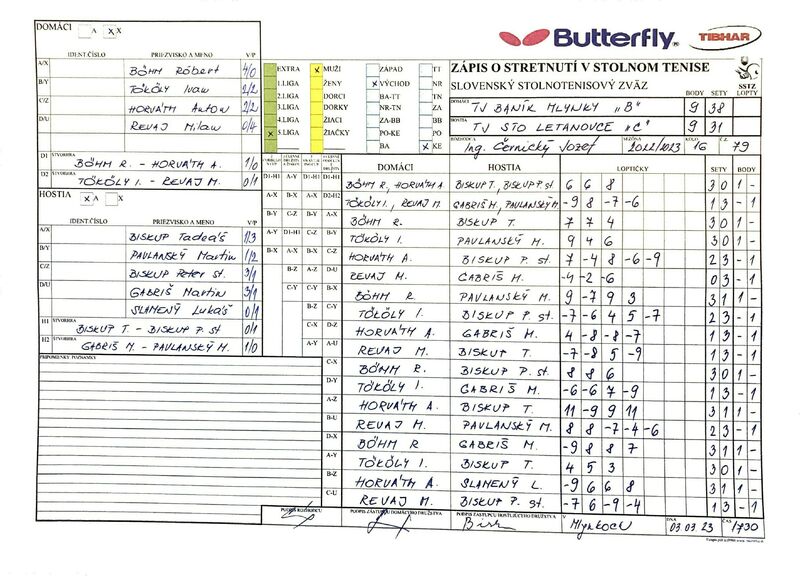 DOMÁCI A x X
Butterfly TIBHAR
IDENT.ČÍSLO PRIEZVISKO A MENO V/P
A/X BÖHM Róbert 4/0
B/Y TÖKÖLY Ivan 2/2
C/Z HORVÁTH Anton 2/2
D/U REVAJ Milan 0/4
D1 ŠTVORHRA BÖHM R. - HORVÁTH A. 1/0
D2 ŠTVORHRA TÖKÖLY I. - REVAJ M. 0/1
HOSTIA x A X
IDENT.ČÍSLO PRIEZVISKO A MENO V/P
A/X BISKUP Tadeáš 1/3
B/Y PAVLANSKÝ Martin 1/2
C/Z BISKUP Peter st. 3/1
D/U GABRIŠ Martin 3/1
SLAMENÝ Lukáš 0/1
H1 ŠTVORHRA BISKUP T. - BISKUP P. st 0/1
H2 ŠTVORHRA GABRIŠ M. - PAVLANSKÝ M. 1/0
PRIPOMIENKY POZNÁMKY
EXTRA x MUŽI ZÁPAD TT
1.LIGA ŽENY x VÝCHOD NR
2.LIGA DORCI BA-TT TN
3.LIGA DORKY NR-TN ZA
4.LIGA ŽIACI ZA-BB BB
x 5.LIGA ŽIAČKY PO-KE PO
BA x KE
ZÁPIS O STRETNUTÍ V STOLNOM TENISE
SLOVENSKÝ STOLNOTENISOVÝ ZVÄZ
SSTZ
BODY SETY LOPTY
DOMÁCI TJ BANÍK MLYNKY "B" 9 38
HOSTIA TJ ŠTO LETANOVCE "C" 9 31
ROZHODCA Ing. Černický Jozef SEZÓNA 2022/2023 KOLO 16 Č.Z. 79
DOMÁCI HOSTIA LOPTIČKY SETY BODY
BÖHM R, HORVÁTH A. BISKUP T., BISKUP P. st 6 6 8 3 0 1 -
TÖKÖLY I., REVAJ M. GABRIŠ M., PAVLANSKÝ M -9 8 -7 -6 1 3 - 1
BÖHM R. BISKUP T. 7 7 4 3 0 1 -
TÖKÖLY I. PAVLANSKÝ M. 9 4 6 3 0 1 -
HORVÁTH A. BISKUP P. st 7 -4 8 -6 -9 2 3 - 1
REVAJ M. GABRIŠ M. -4 -2 -6 0 3 - 1
BÖHM R. PAVLANSKÝ M. 9 -7 9 3 3 1 1 -
TÖKÖLY I. BISKUP P. st. -7 -6 4 5 -7 2 3 - 1
HORVÁTH A. GABRIŠ M. 4 -8 -8 -7 1 3 - 1
REVAJ M. BISKUP T. -7 -8 5 -9 1 3 - 1
BÖHM R. BISKUP P. st. 8 8 6 3 0 1 -
TÖKÖLY I. GABRIŠ M. -6 -6 7 -9 1 3 - 1
HORVÁTH A. BISKUP T. 11 -9 9 11 3 1 1 -
REVAJ M. PAVLANSKÝ M. 8 8 -7 -4 -6 2 3 - 1
BÖHM R GABRIŠ M. -9 8 8 7 3 1 1 -
TÖKÖLY I. BISKUP T. 4 5 3 3 0 1 -
HORVÁTH A. SLAMENÝ L. -9 6 6 8 3 1 1 -
REVAJ M. BISKUP P. st. -7 6 -9 -4 1 3 - 1
PODPIS ROZHODCU PODPIS ZÁSTUPCU DOMÁCEHO DRUŽSTVA PODPIS ZÁSTUPCU HOSŤUJÚCEHO DRUŽSTVA
V Mlynkoch DŇA 03.03.23 ČAS 1730